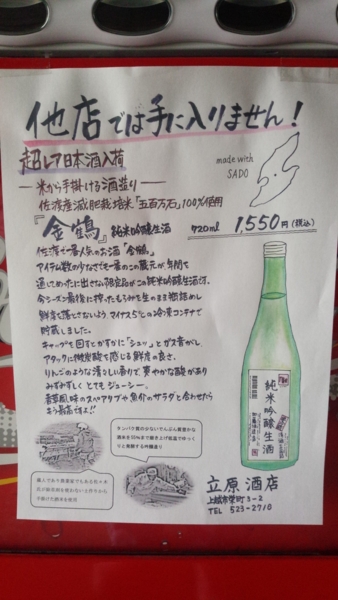 他店では手に入りません!
超レア日本酒入荷
made with
SADO
―米から手掛ける酒造り―
佐渡産減肥栽培米「五百万石」100%使用
『金鶴』純米吟醸生酒
720ml 1,550円(税込)
佐渡で一番人気のお酒「金鶴」。
アイテム数の少なさでも一番のこの蔵元が、年間を
通してめったに出さない限定品がこの純米吟醸生酒です。
今シーズン最後に搾ったもろみを生のまま瓶詰めし
鮮度を落とさないよう、マイナス5℃の冷凍コンテナで
貯蔵しました。
キャップを回すとかすかに「シュッ」とガス音がし
アタックに微炭酸を感じる鮮度の良さ。
りんごのような清々しい香りで、爽やかな酸があり
みずみずしくとてもジューシー。
純米吟醸生酒
タンパク質の少ないでんぷん質豊かな
酒米を
立原酒店
上越市栄町3-2
TEL 523-2710